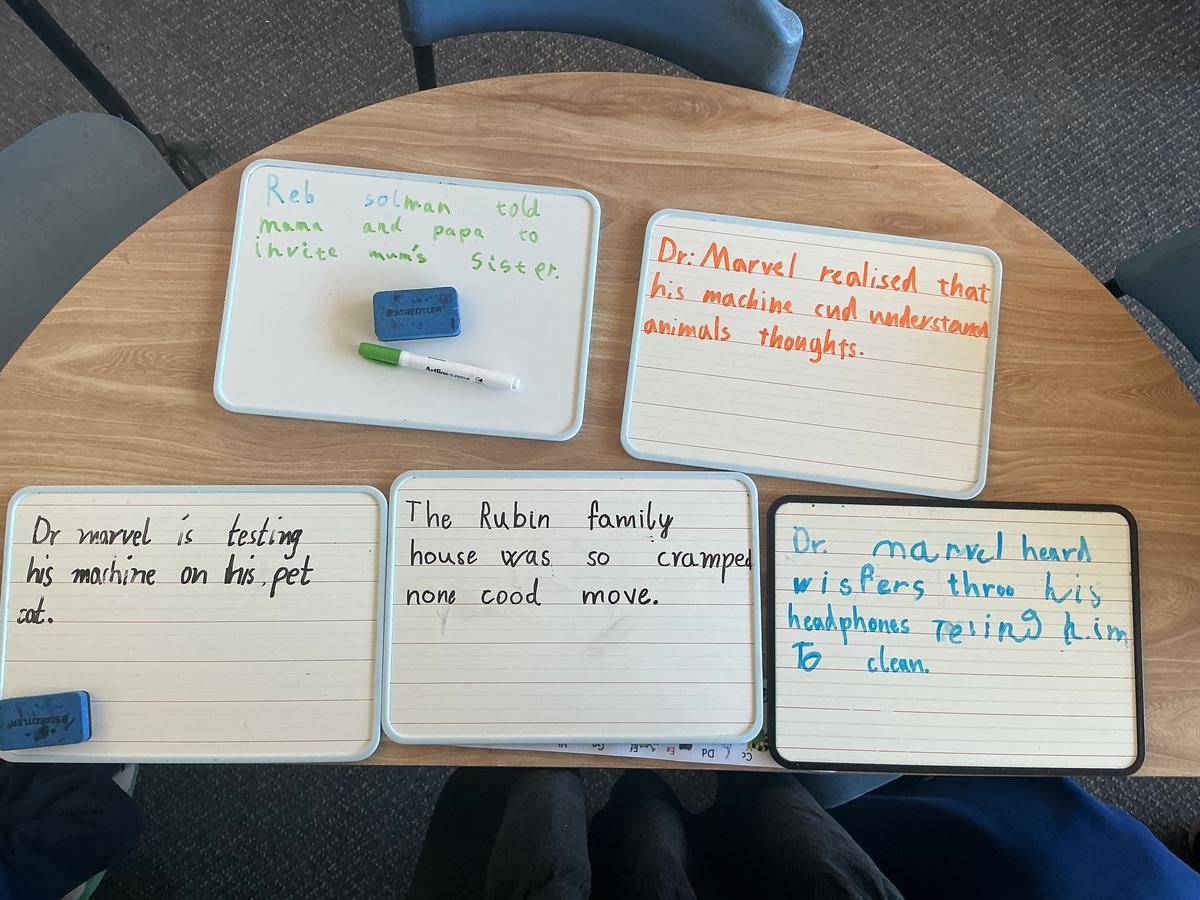 Reb solman told
mama and papa to
invite mum's sister.
STAEDTLER
Artline
Dr: Marvel realised that
his machine cud understand
animals thoughts.
Dr marvel is testing
his machine on his pet
cat.
STAEDTLER
The Rubin family
house was so cramped
none cood move.
Dr. marvel heard
wispers throo his
headphones teling him
To clean.
Cc Dd Ee Ff Gg Hh